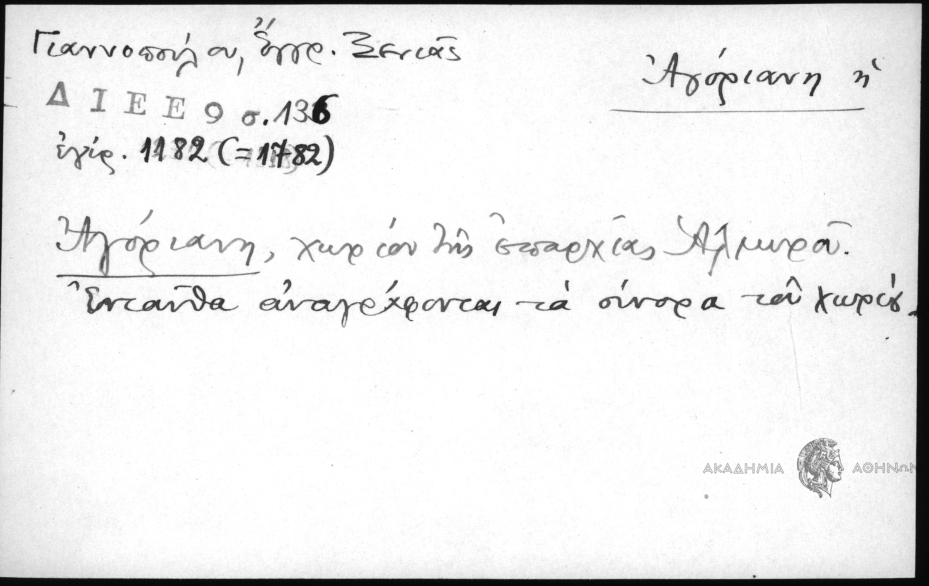 Γιαννοπούλου, Ἔγγρ. Ξενιᾶς
Ἀγόριανη ἡ
ΔΙΕΕ 9 σ. 136
ἐγγρ. 1182 (=1782)
Ἀγόριανη, χωρίον τῆς ἐπαρχίας Ἁλμυροῦ.
Ἐνταῦθα ἀναγράφονται τὰ σύνορα τοῦ χωρίου.
ΑΚΑΔΗΜΙΑ ΑΘΗΝΩΝ